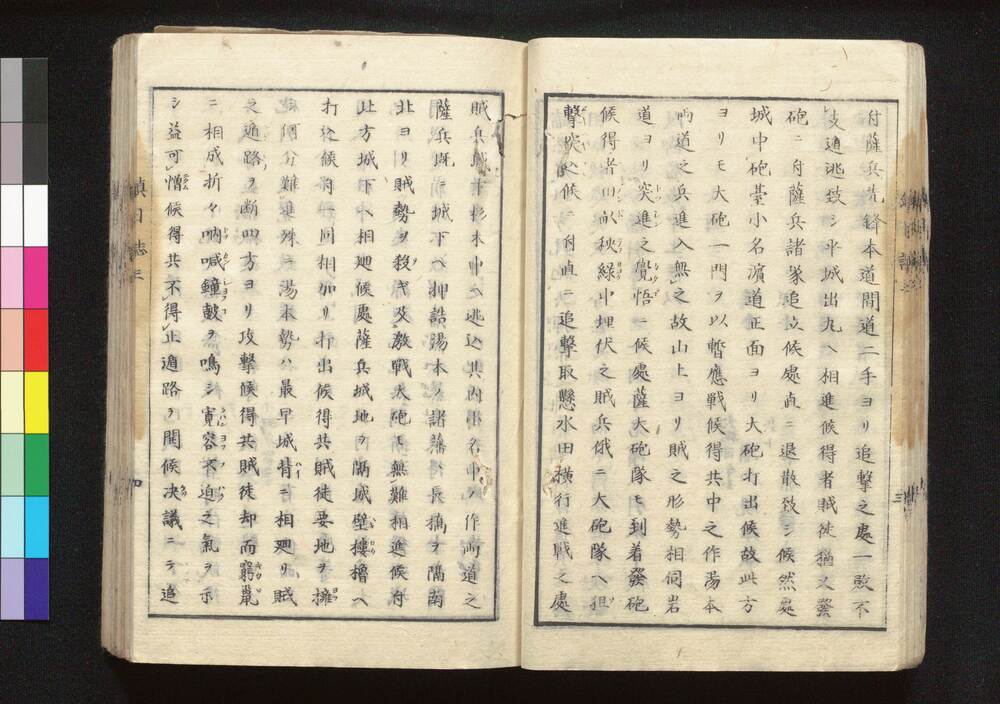 付薩兵先鋒本道間道二手ヨリ追撃之處一敗不
支遁逃致シ平城出丸ヘ相進候得者賊徒猶又發
砲ニ付薩兵諸家追立候處直ニ退散致シ候然處
城中砲臺小名濵道正面ヨリ大砲打出候故此方
ヨリモ大砲一門ヲ以暫應戦候得共中之作湯本
両道之兵進入無之故山上ヨリ賊之形勢相伺岩
道ヨリ突進之覺悟ニ候處薩大砲隊モ到着發砲
候得者田畝秧緑中埋伏之賊兵俄ニ大砲隊ヘ狙
撃突入候ニ付直ニ追撃取懸水田横行進戦之處
賊兵城下杉木中ヘ逃込其内小名中ノ作両道之
薩兵既ニ城下ヘ押詰腸本ノ諸藩ハ長橋ヲ隔南
北ヨリ賊勢ヲ殺ギ及激戰大砲モ無難相進候付
此方城下ヘ相廻候處薩兵城地ヲ隔城壁摟櫓ヘ
打込候付同相加リ打出候得共賊徒要地ヲ擁
シ何分難進殊ニ湯本勢ハ最早城背ニ相廻リ賊
之遁路ヲ断四方ヨリ攻撃候得共賊徒却而窮鼠
ニ相成折々吶喊鐘皷ヲ鳴シ寛容不迫之氣ヲ示
シ益可憎候得共不得止遁路ヲ開候决議ニテ追
慎日誌三
四